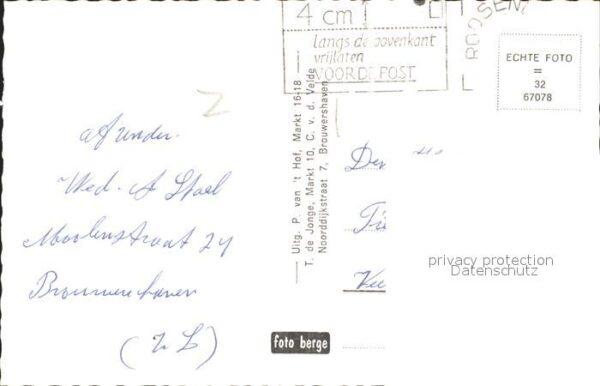 4 cm
langs de bovenkant
vrijlaten
VOOR DE POST
ROOSEN
ECHTE FOTO
=
32
67078
afzender.
Wed. A Stael
Moolenstraat 24
Brouwershaven
(Z L)
Uitg. P. van 't Hof, Markt 16-18
T. de Jonge, Markt 10, C. v. d. Velde
Noorddijkstraat 7, Brouwershaven
foto berge
privacy protection
Datenschutz